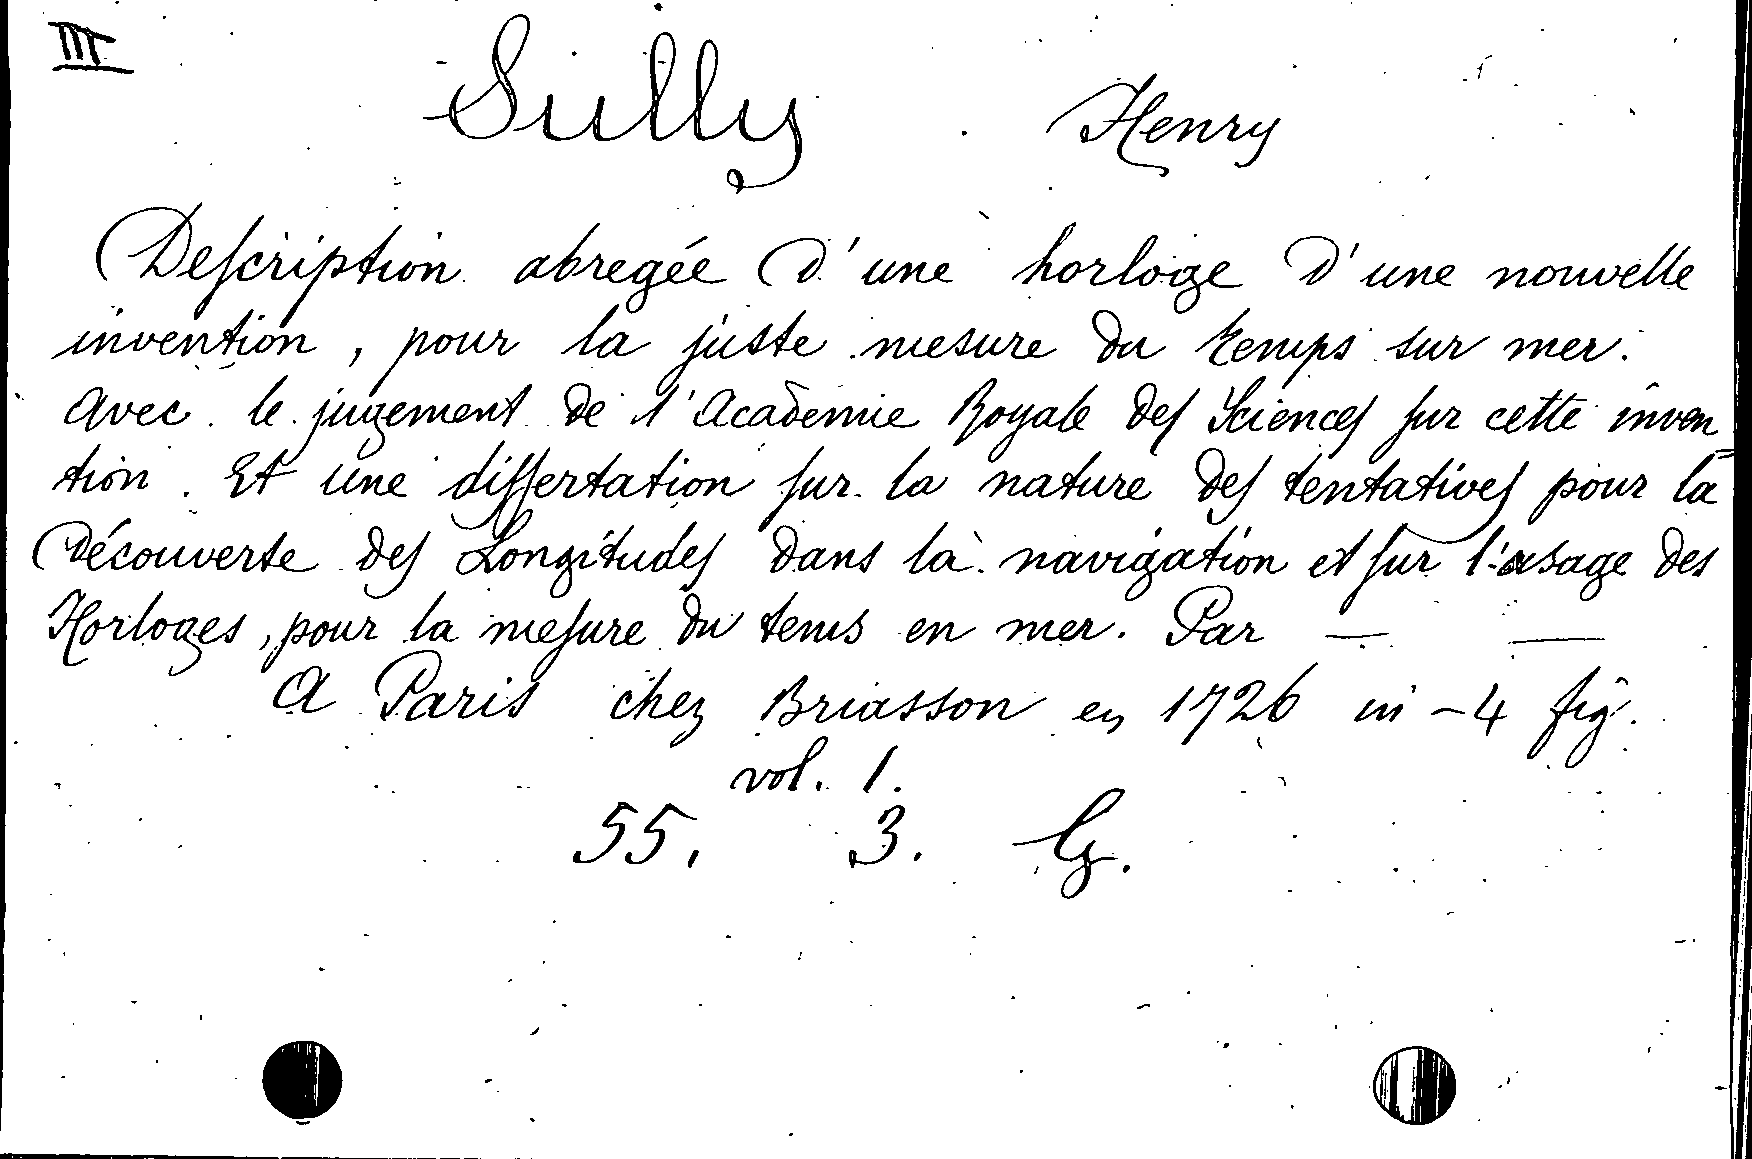 III
Sully Henry
Deſcription abregée d'une horloge d'une nouvelle
invention, pour la juste mesure du temps sur mer.
Avec le jugement de l'Academie Royale deſ Scienceſ ſur cette inven=
tion. Et une diſſertation ſur la nature deſ tentativeſ pour la
découverte deſ Longitudeſ dans la navigation et ſur l'usage des
Horloges, pour la meſure du tems en mer. Par — —
A Paris chez Briasson en 1726 in-4 fig.
vol. 1.
55. 3. G.